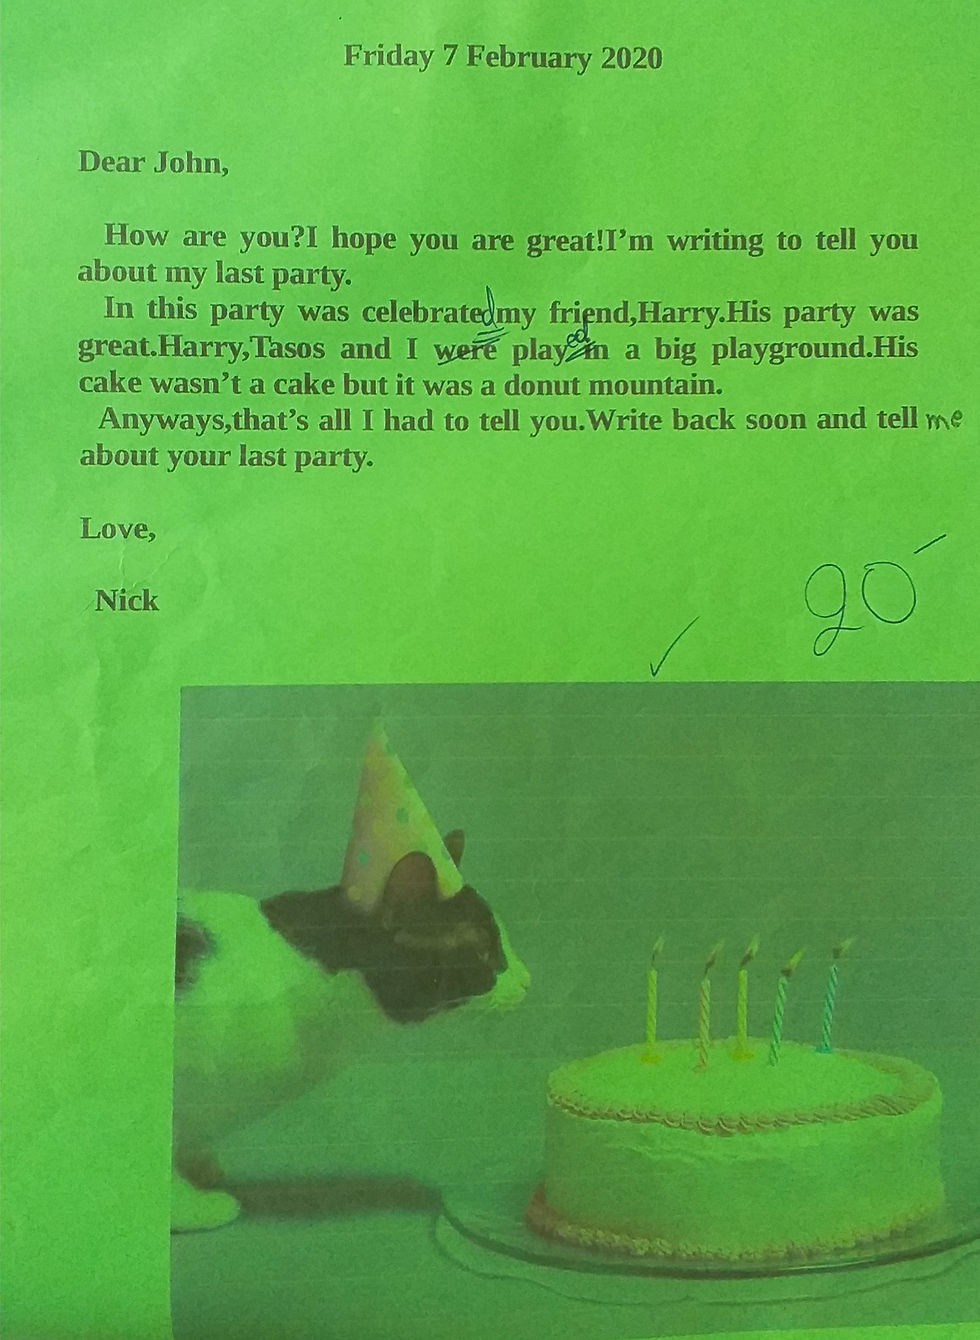 Friday 7 February 2020
Dear John,
How are you?I hope you are great!I'm writing to tell you
about my last party.
In this party was celebrated my friend,Harry.His party was
great.Harry,Tasos and I were played in a big playground.His
cake wasn't a cake but it was a donut mountain.
Anyways,that's all I had to tell you.Write back soon and tell me
about your last party.
Love,
Nick